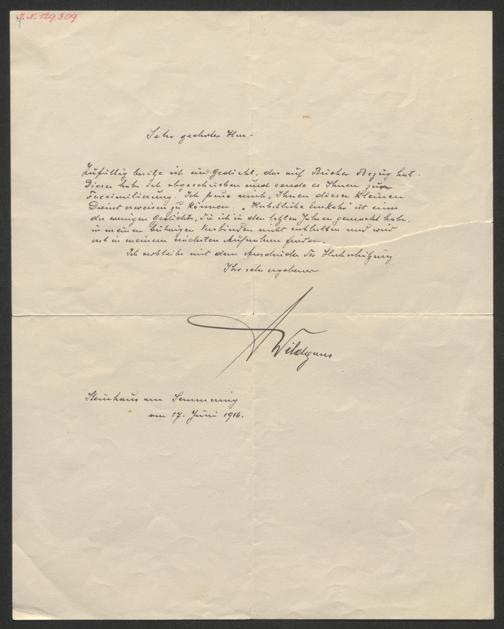 J.N. 129309
Sehr geehrter Herr –
Zufällig besitze ich ein Gedicht, das auf Bücher Bezug hat.
Dieses habe ich abgeschrieben und sende es Ihnen zur
Facsimilierung. Ich freue mich, Ihnen diesen kleinen
Dienst erweisen zu können. „Herbstliche Einkehr“ ist eines
der wenigen Gedichte, die ich in den letzten Jahren gemacht habe,
in meinen bisherigen Versbüchern nicht enthalten und wird
erst in meinem nächsten Aufnahme finden.
Ich verbleibe mit dem Ausdrucke der Hochschätzung
Ihr sehr ergebener
A Wildgans
Steinhaus am Semmering
am 17. Juni 1916.